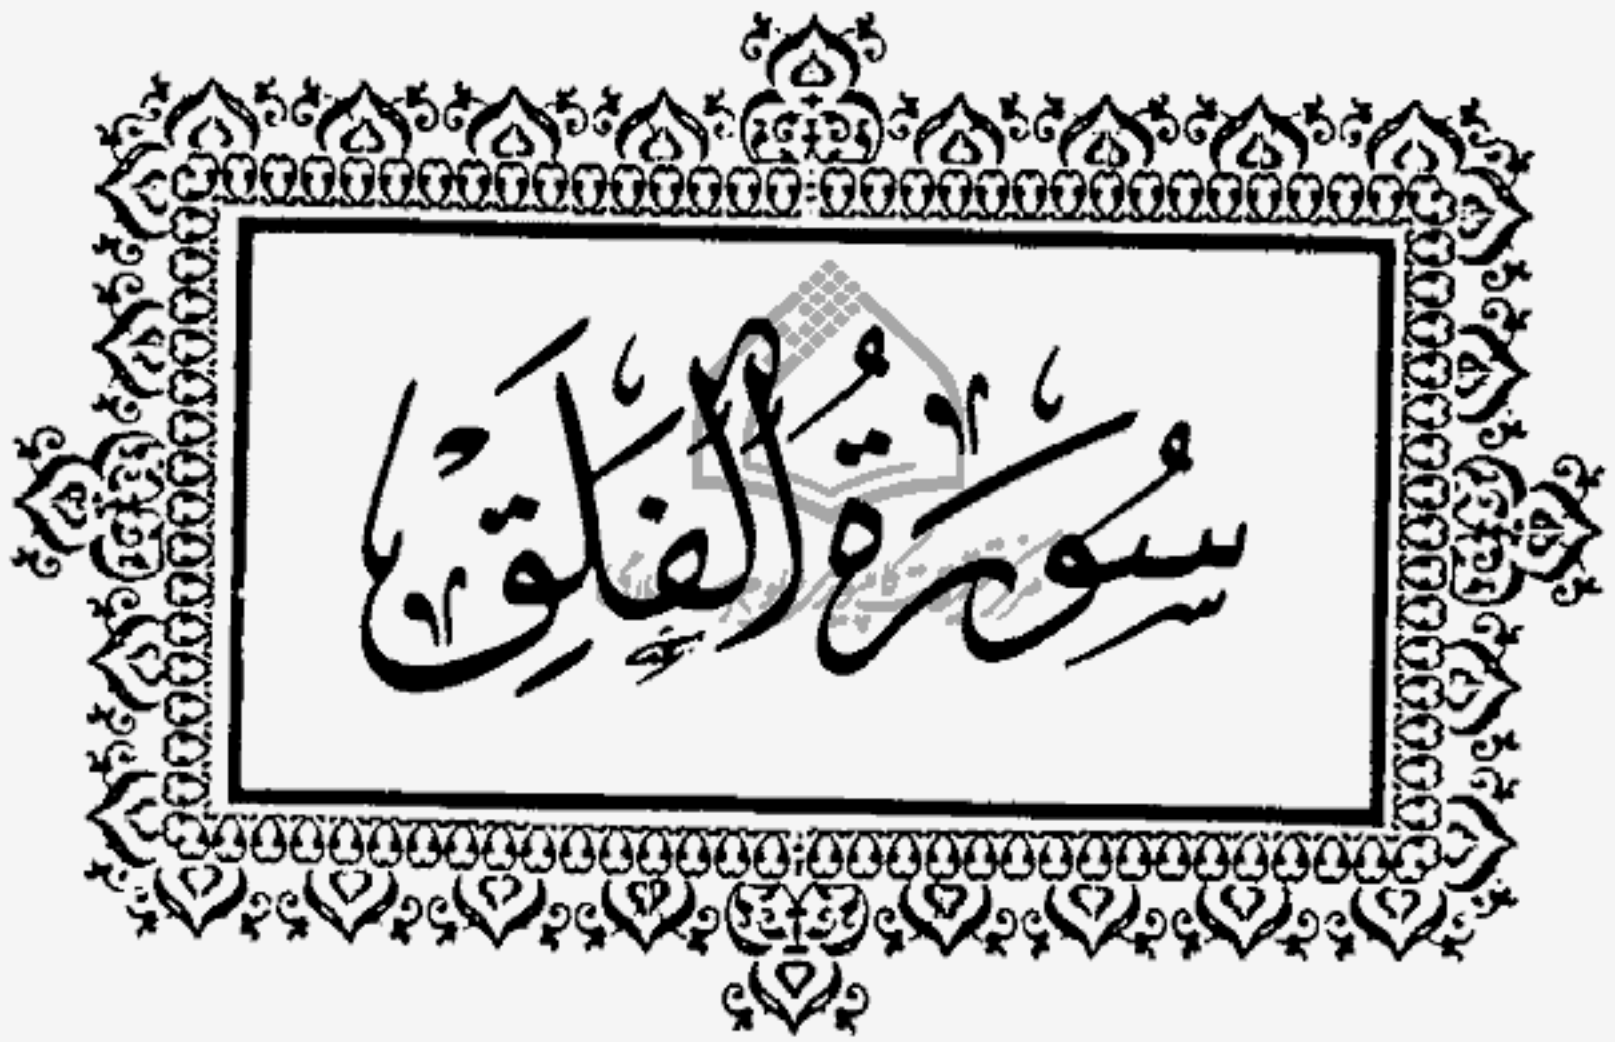 سُورَةُ الْفَلَقِ